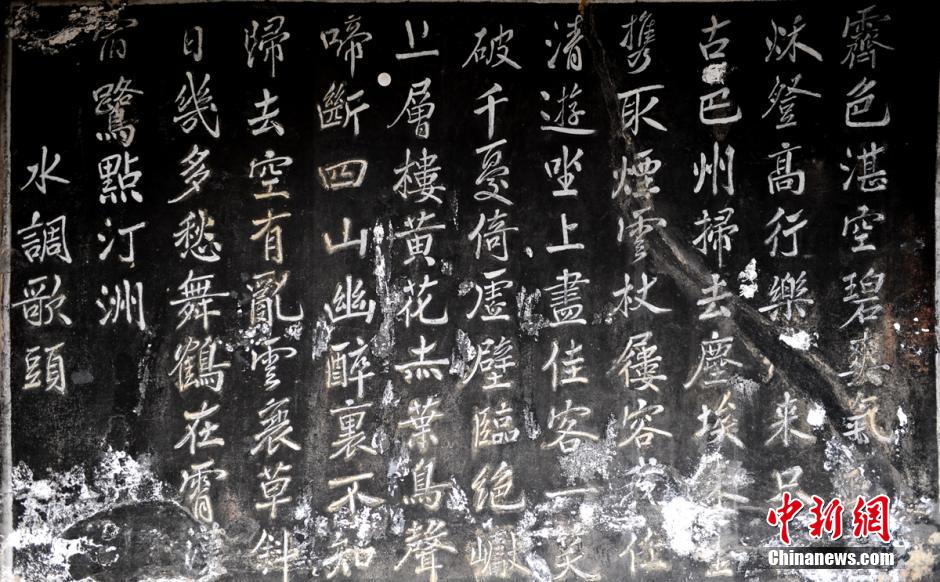 霽色湛空碧爽氣
秋登高行樂来呂
古巴州掃去塵埃
携取煙雲杖屨容任
清遊坐上盡佳客一笑
破千憂倚虛壁臨絶巘
上層樓黄花赤葉鳥聲
啼斷四山幽醉裏不知
歸去空有亂雲衰草斜
日幾多愁舞鶴在霄漢
宿鷺點汀洲
水調歌頭
中新网
Chinanews.com